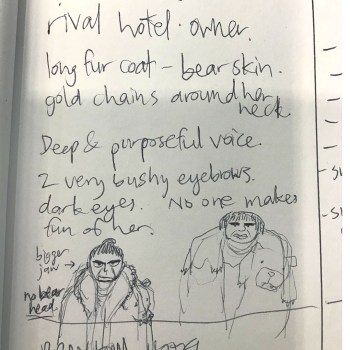 rival hotel owner.
long fur coat - bear skin.
gold chains around her
neck
Deep & purposeful voice.
2 very bushy eyebrows.
dark eyes. No one makes
fun of her.
bigger
jaw →
no bear
head